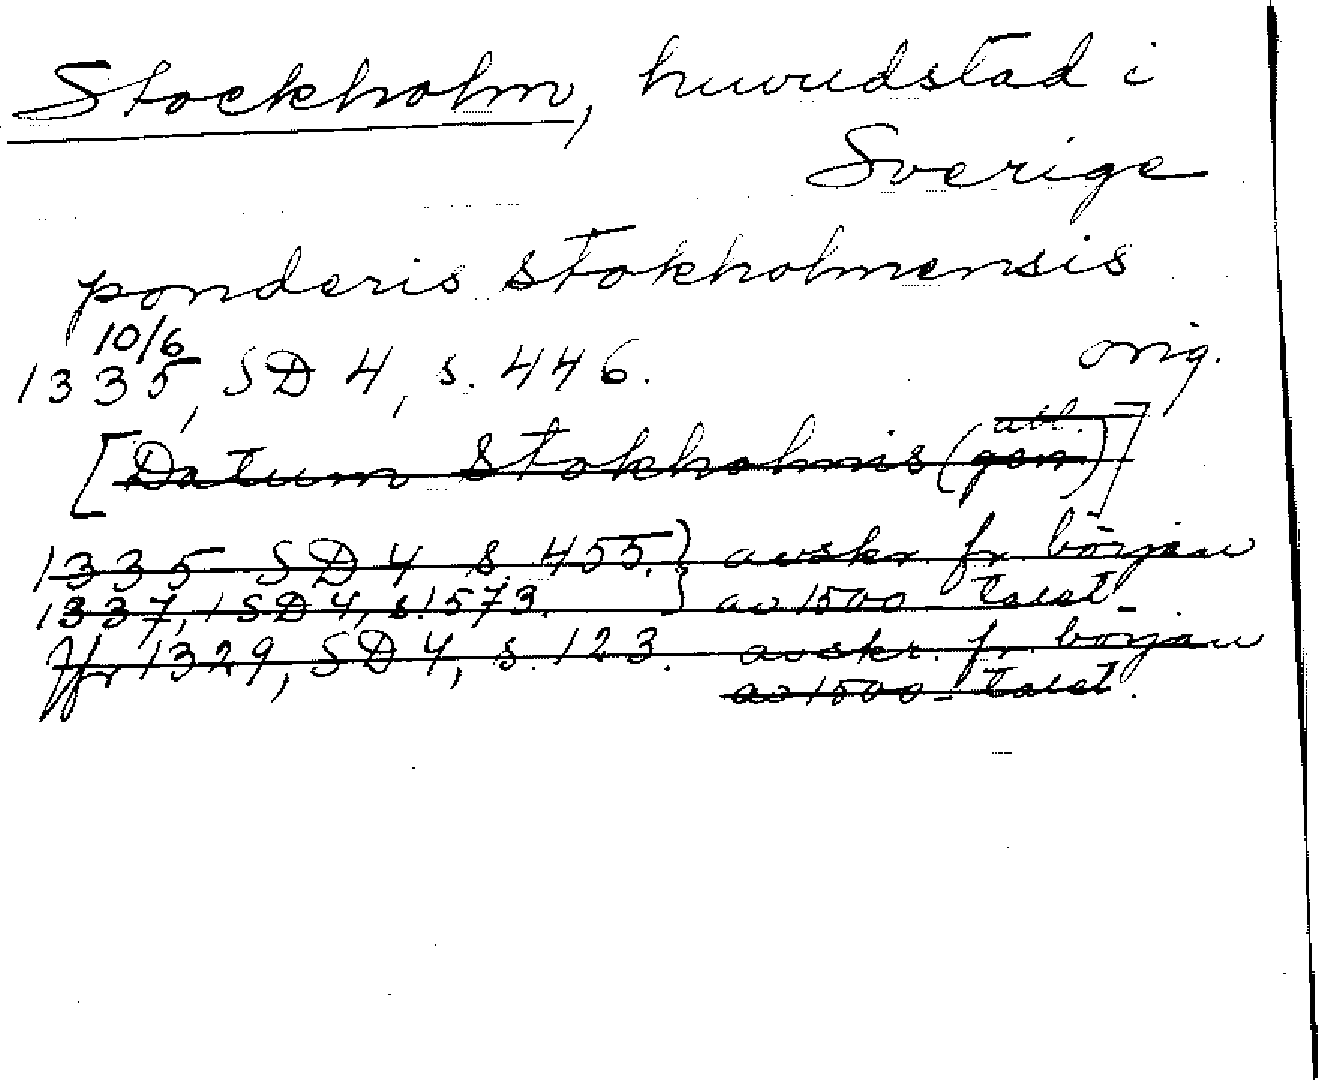 Stockholm, huvudstad i
Sverige
ponderis stokholmensis
10/6
1335, SD 4, s. 446. orig.
[Datum Stokholmis (gen)]
1335 SD 4 s. 455. } avskr fr början
1337, SD 4, s. 573. } av 1500-talet.
Jfr 1329, SD 4, s. 123. avskr. fr. början
av 1500-talet.